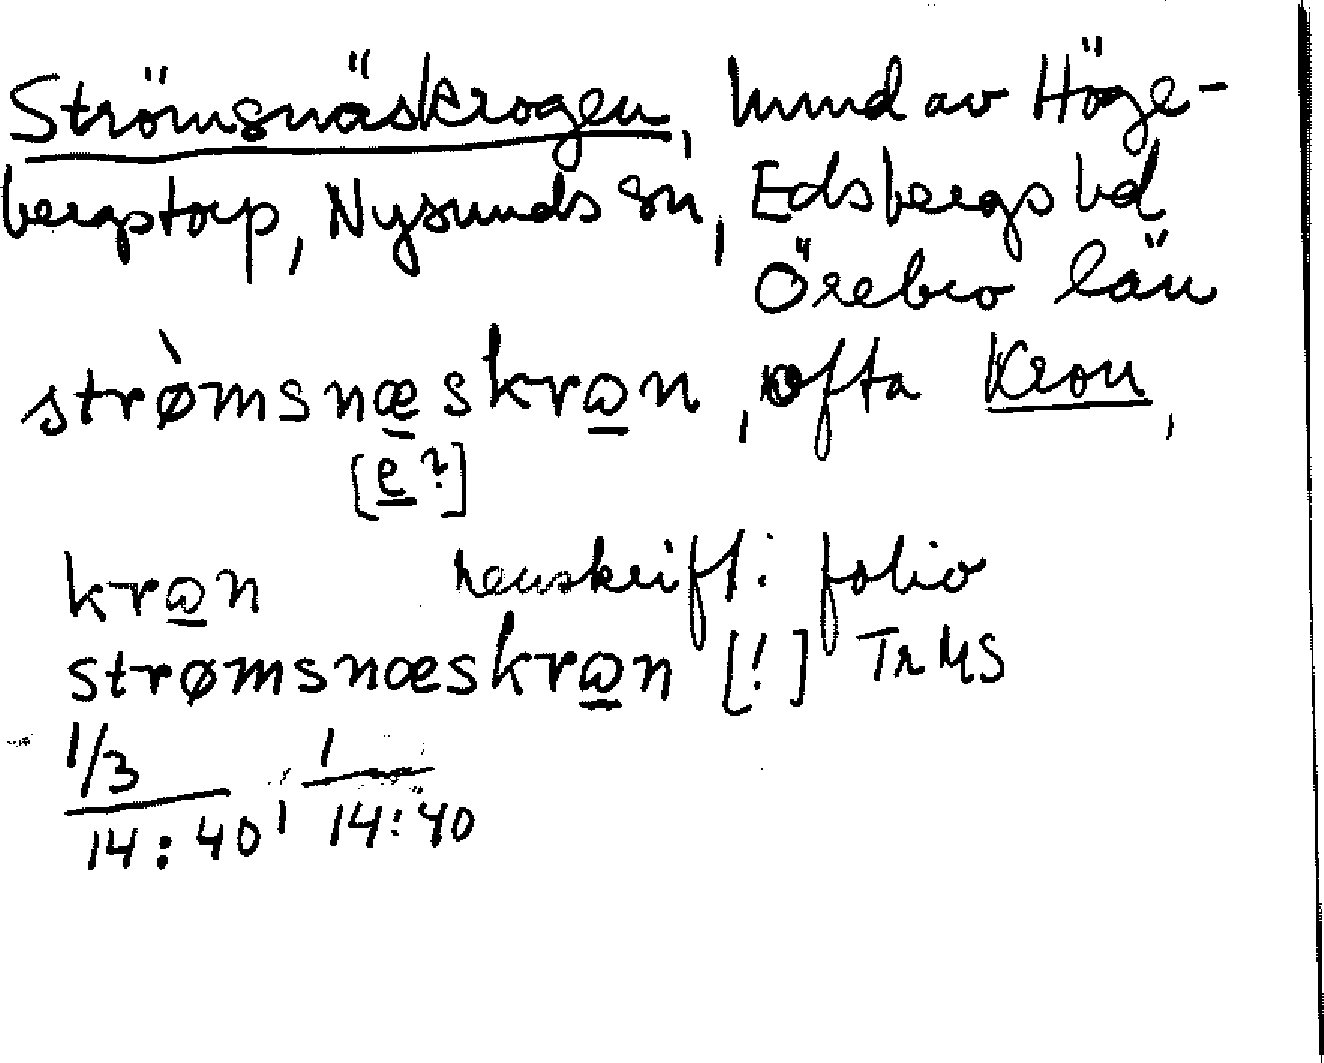 Strömsnäskrogen, hmnd av Höge-
bergstorp, Nysunds sn, Edsbergs hd
Örebro län
strø̀msnæskrωn, ofta Kron,
[e?]
krωn renskrift: folio
strømsnæskrωn [!] TrMS
1/3
14:40, 1
14:40